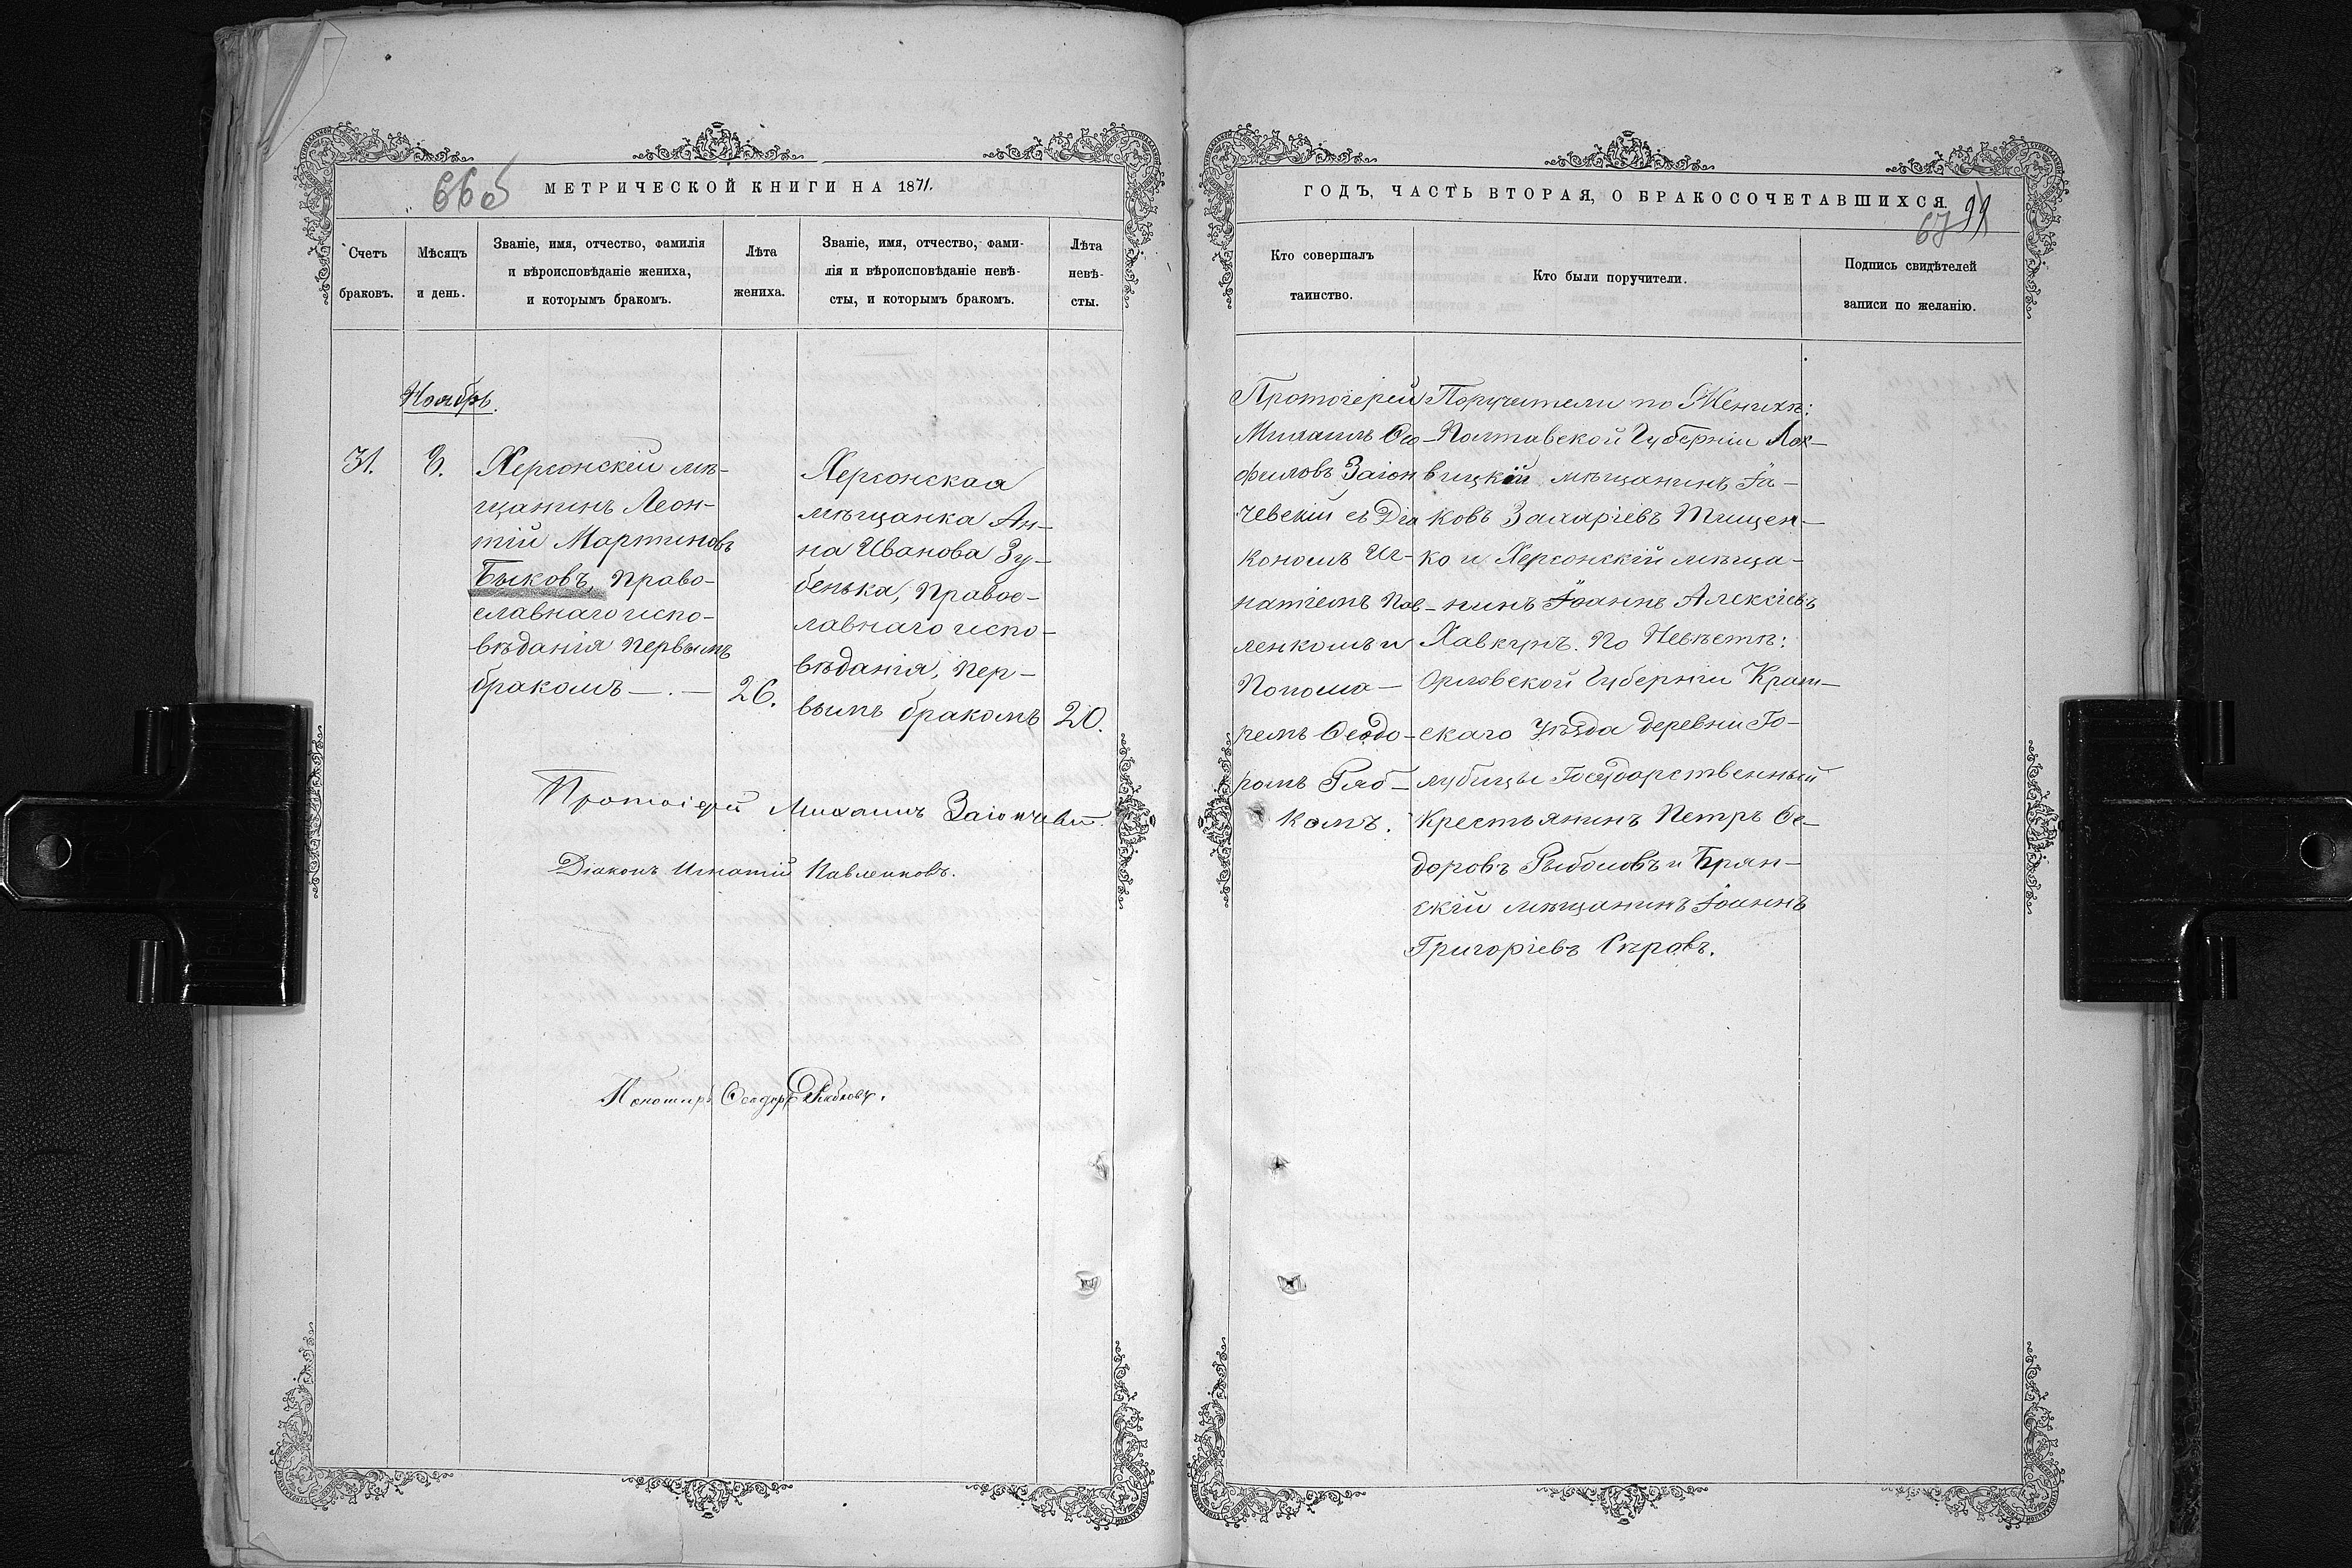 66б
МЕТРИЧЕСКОЙ КНИГИ НА 1871.
Счетъ
браковъ.
Мѣсяцъ
и день.
Званіе, имя, отчество, фамилія
и вѣроисповѣданіе жениха,
и которымъ бракомъ.
Лѣта
жениха.
Званіе, имя, отчество, фами-
лія и вѣроисповѣданіе невѣ-
сты, и которымъ бракомъ.
Лѣта
невѣ-
сты.
Ноябрь.
31.
8.
Херсонскій мѣ-
щанинъ Леон-
тій Мартиновъ
Быковъ, право-
славнаго испо-
вѣданія первымъ
бракомъ —.—
26.
Херсонская
мѣщанка Ан-
на Иванова Зу-
бенька, правос-
лавнаго испо-
вѣданія, пер-
вымъ бракомъ
20.
Протоіерей Михаилъ Заіончевскій.
Діаконъ Игнатій Павленковъ.
Пономарь Феодоръ Рябковъ.
ГОДЪ, ЧАСТЬ ВТОРАЯ, О БРАКОСОЧЕТАВШИХСЯ
67 99
Кто совершалъ
таинство.
Кто были поручители.
Подпись свидѣтелей
записи по желанію.
Протоіерей
Михаилъ Θео-
филовъ Заіон
чевскій съ Діа
кономъ Иг-
натіемъ Пав-
ленкомъ и
Понома-
ремъ Θеодо-
ромъ Ряб-
комъ.
Поручители по Женихѣ:
Полтавской Губерніи Лох-
вицкій мѣщанинъ Іа-
ковъ Захаріевъ Тищен-
ко и Херсонскій мѣща-
нинъ Іоаннъ Алексіевъ
Хавкунъ. По Невѣстѣ:
Орловской Губерніи Крам-
скаго Уѣзда деревни Го-
лубицы Государственный
Крестьянинъ Петръ Θе-
доровъ Рыбоковъ и Брян-
скій мѣщанинъ Іоаннъ
Григоріевъ Сѣровъ.